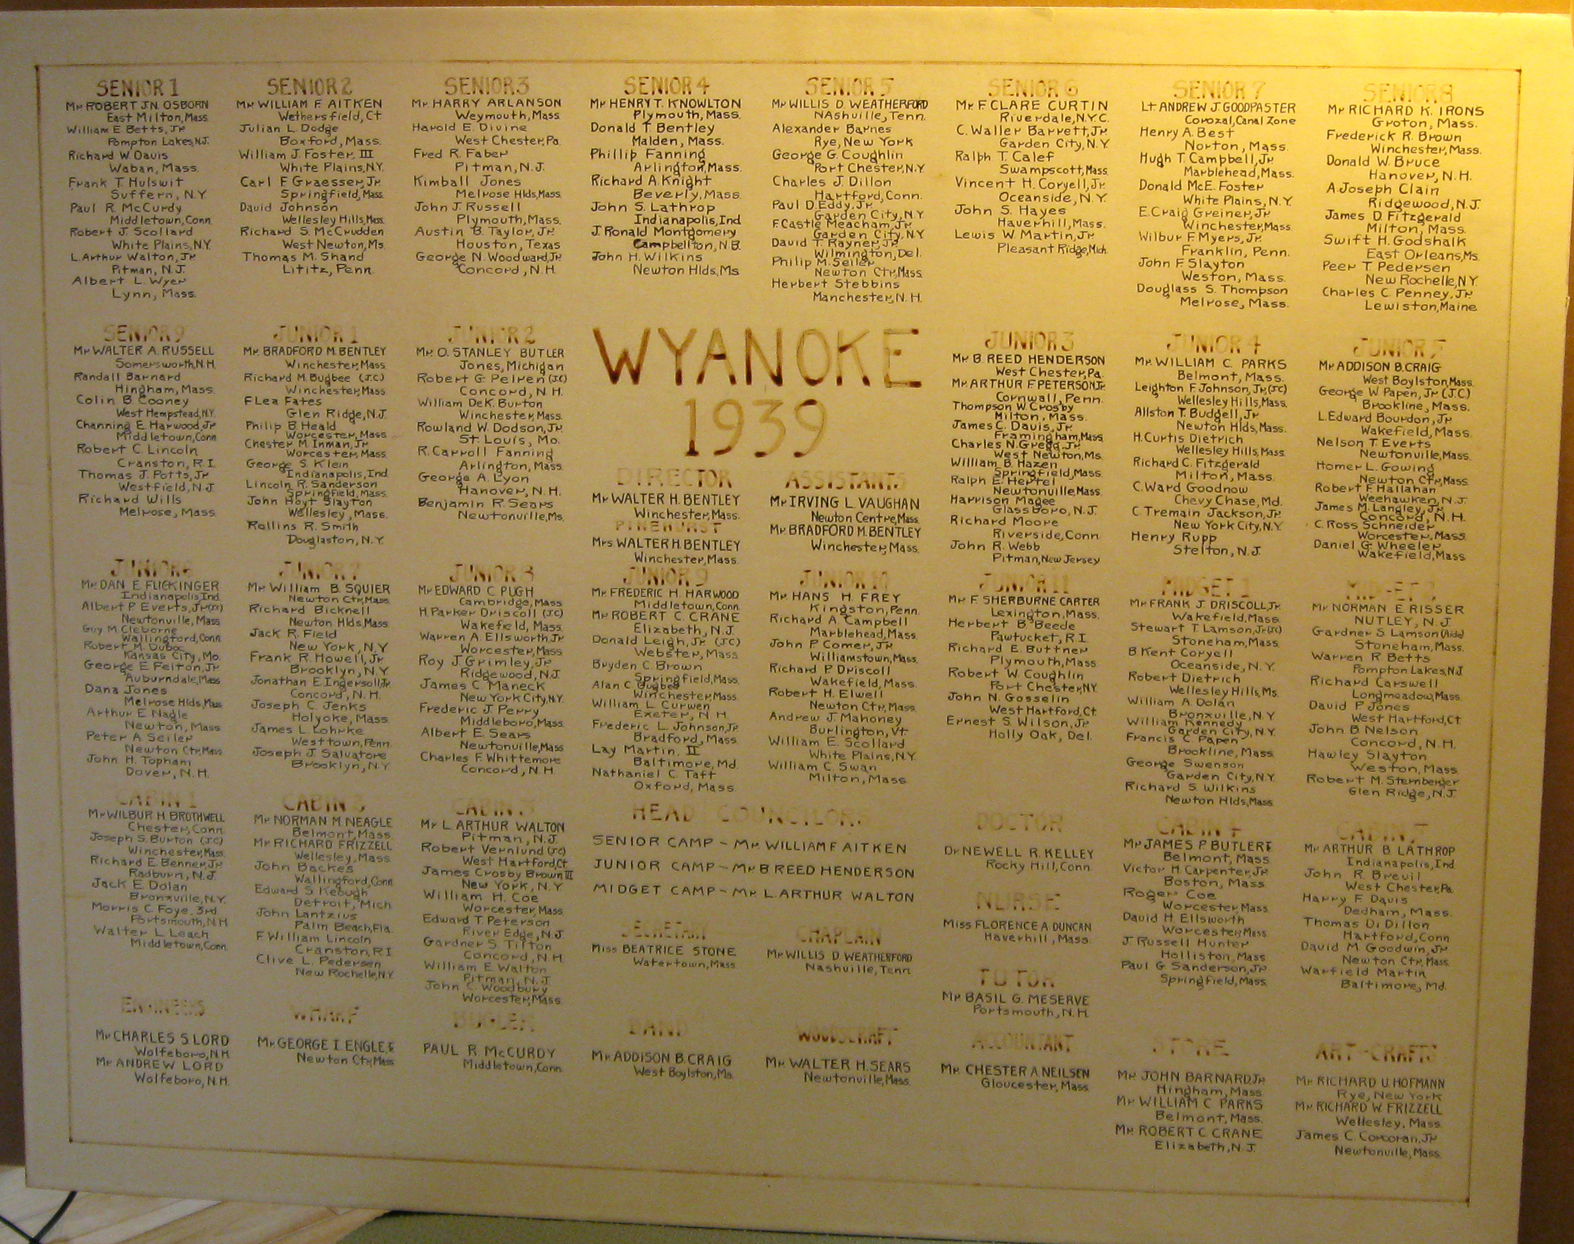 SENIOR 1
Mr ROBERT J.N. OSBORN
East Milton, Mass.
William E. Betts, Jr
Pompton Lakes, N.J.
Richard W. Davis
Waban, Mass.
Frank T. Hulswit
Suffern, N.Y
Paul R. McCurdy
Middletown, Conn
Robert J. Scollard
White Plains, N.Y.
L. Arthur Walton, Jr
Pitman, N.J.
Albert L. Wyer
Lynn, Mass.
SENIOR 2
Mr WILLIAM F. AITKEN
Wethersfield, Ct
Julian L. Dodge
Boxford, Mass.
William J. Foster, III
White Plains, N.Y.
Carl F. Graesser, Jr
Springfield, Mass.
David Johnson
Wellesley Hills, Mass.
Richard S. McCrudden
West Newton, Ms.
Thomas M. Shand
Lititz, Penn.
SENIOR 3
Mr HARRY ARLANSON
Weymouth, Mass.
Harold E. Divine
West Chester, Pa.
Fred R. Faber
Pitman, N.J.
Kimball Jones
Melrose Hlds, Mass.
John J. Russell
Plymouth, Mass.
Austin B. Taylor, Jr
Houston, Texas
George N. Woodward, Jr
Concord, N.H.
SENIOR 4
Mr HENRY T. KNOWLTON
Plymouth, Mass.
Donald T. Bentley
Malden, Mass.
Phillip Fanning
Arlington, Mass.
Richard A. Knight
Beverly, Mass.
John S. Lathrop
Indianapolis, Ind
J. Ronald Montgomery
Campbellton, N.B.
John H. Wilkins
Newton Hlds, Ms
SENIOR 5
Mr WILLIS D. WEATHERFORD
Nashville, Tenn.
Alexander Barnes
Rye, New York
George G. Coughlin
Port Chester, N.Y
Charles J. Dillon
Hartford, Conn.
Paul D. Eddy, Jr
Garden City, N.Y
F. Castle Meacham, Jr
Garden City, N.Y
David T. Rayner, Jr
Wilmington, Del.
Philip M. Seiler
Newton Ctr, Mass.
Herbert Stebbins
Manchester, N.H.
SENIOR 6
Mr F. CLARE CURTIN
Riverdale, N.Y.C.
C. Waller Barrett, Jr
Garden City, N.Y
Ralph T. Calef
Swampscott, Mass.
Vincent H. Coryell, Jr.
Oceanside, N.Y.
John S. Hayes
Haverhill, Mass.
Lewis W. Martin, Jr
Pleasant Ridge, Mich.
SENIOR 7
Lt. ANDREW J. GOODPASTER
Corozal, Canal Zone
Henry A. Best
Norton, Mass.
Hugh T. Campbell, Jr
Marblehead, Mass.
Donald McE. Foster
White Plains, N.Y
E. Craig Greiner, Jr
Winchester, Mass.
Wilbur F. Myers, Jr
Franklin, Penn.
John F. Slayton
Weston, Mass.
Douglass S. Thompson
Melrose, Mass.
SENIOR 8
Mr RICHARD K. IRONS
Groton, Mass.
Frederick R. Brown
Winchester, Mass.
Donald W. Bruce
Hanover, N.H.
A. Joseph Clain
Ridgewood, N.J.
James D. Fitzgerald
Milton, Mass.
Swift H. Godshalk
East Orleans, Ms.
Peer T. Pedersen
New Rochelle, N.Y
Charles C. Penney, Jr
Lewiston, Maine
SENIOR 9
Mr WALTER A. RUSSELL
Somersworth, N.H.
Randall Barnard
Hingham, Mass.
Colin B. Cooney
West Hempstead, N.Y.
Channing E. Harwood, Jr
Middletown, Conn
Robert C. Lincoln
Cranston, R.I.
Thomas J. Potts, Jr
Westfield, N.J.
Richard Wills
Melrose, Mass
JUNIOR 1
Mr BRADFORD M. BENTLEY
Winchester, Mass
Richard M. Bugbee (J.C.)
Winchester, Mass.
F. Lea Fates
Glen Ridge, N.J.
Philip B. Heald
Worcester, Mass
Chester M. Inman, Jr
Worcester, Mass.
George S. Klein
Indianapolis, Ind
Lincoln R. Sanderson
Springfield, Mass.
John Hoyt Slayton
Wellesley, Mass.
Rollins R. Smith
Douglaston, N.Y
JUNIOR 2
Mr O. STANLEY BUTLER
Jones, Michigan
Robert G. Peiren (J.C)
Concord, N.H.
William DeK. Burton
Winchester, Mass.
Rowland W. Dodson, Jr
St. Louis, Mo.
R. Carroll Fanning
Arlington, Mass.
George A. Lyon
Hanover, N.H.
Benjamin R. Sears
Newtonville, Ms.
WYANOKE
1939
DIRECTOR
Mr WALTER H. BENTLEY
Winchester, Mass.
PINEHURST
Mrs WALTER H. BENTLEY
Winchester, Mass.
ASSISTANTS
Mr IRVING L. VAUGHAN
Newton Centre, Mass.
Mr BRADFORD M. BENTLEY
Winchester, Mass.
JUNIOR 3
Mr B. REED HENDERSON
West Chester, Pa.
Mr ARTHUR F. PETERSON, Jr
Cornwall, Penn.
Thompson W. Crosby
Milton, Mass.
James C. Davis, Jr
Framingham, Mass
Charles N. Gregg, Jr
West Newton, Ms.
William B. Hazen
Springfield, Mass.
Ralph E. Hertel
Newtonville, Mass.
Harrison Magee
Glassboro, N.J
Richard Moore
Riverside, Conn
John R. Webb
Pitman, New Jersey
JUNIOR 4
Mr WILLIAM C. PARKS
Belmont, Mass.
Leighton F. Johnson, Jr (J.C)
Wellesley Hills, Mass.
Allston T. Budgell, Jr
Newton Hlds, Mass.
H. Curtis Dietrich
Wellesley Hills, Mass.
Richard C. Fitzgerald
Milton, Mass.
C. Ward Goodnow
Chevy Chase, Md.
C. Tremain Jackson, Jr
New York City, N.Y.
Henry Rupp
Stelton, N.J
JUNIOR 5
Mr ADDISON B. CRAIG
West Boylston, Mass.
George W. Papen, Jr (J.C)
Brookline, Mass.
L. Edward Bourdon, Jr
Wakefield, Mass.
Nelson T. Everts
Newtonville, Mass.
Homer L. Gowing
Newton Ctr, Mass.
Robert F. Hallahan
Weehawken, N.J.
James M. Langley, Jr
Concord, N.H.
C. Ross Schneider
Worcester, Mass.
Daniel G. Wheeler
Wakefield, Mass
JUNIOR 6
Mr DAN E. FLICKINGER
Indianapolis, Ind.
Albert P. Everts, Jr (J.C)
Newtonville, Mass
Guy M. Cleborne
Wallingford, Conn
Robert M. Duboc
Kansas City, Mo.
George E. Felton, Jr
Auburndale, Mass
Dana Jones
Melrose Hlds, Mass
Arthur E. Nagle
Newton, Mass
Peter A. Seiler
Newton Ctr, Mass
John H. Topham
Dover, N.H.
JUNIOR 7
Mr William B. SQUIER
Newton Ctr, Mass
Richard Bicknell
Newton Hlds, Mass
Jack R. Field
New York, N.Y
Frank R. Howell, Jr
Brooklyn, N.Y
Jonathan E. Ingersoll, Jr
Concord, N.H.
Joseph C. Jenks
Holyoke, Mass
James L. Lohrke
Westtown, Penn.
Joseph J. Salvatore
Brooklyn, N.Y
JUNIOR 8
Mr EDWARD C. PUGH
Cambridge, Mass
H. Parker Driscoll (J.C)
Wakefield, Mass.
Warren A. Ellsworth, Jr
Worcester, Mass
Roy J. Grimley, Jr
Ridgewood, N.J
James C. Maneck
New York City, N.Y.
Frederic J. Perry
Middleboro, Mass.
Albert E. Sears
Newtonville, Mass
Charles F. Whittemore
Concord, N.H
JUNIOR 9
Mr FREDERIC H. HARWOOD
Middletown, Conn
Mr ROBERT C. CRANE
Elizabeth, N.J
Donald Leigh, Jr (J.C)
Webster, Mass
Bryden C. Brown
Springfield, Mass.
Alan C. Bugbee
Winchester, Mass
William L. Curwen
Exeter, N.H
Frederic L. Johnson, Jr
Bradford, Mass
Lay Martin, II
Baltimore, Md.
Nathaniel C. Taft
Oxford, Mass
JUNIOR 10
Mr HANS H. FREY
Kingston, Penn.
Richard A. Campbell
Marblehead, Mass.
John P. Comer, Jr
Williamstown, Mass.
Richard P. Driscoll
Wakefield, Mass
Robert H. Elwell
Newton Ctr, Mass
Andrew J. Mahoney
Burlington, Vt
William E. Scollard
White Plains, N.Y
William C. Swan
Milton, Mass
JUNIOR 11
Mr F. SHERBURNE CARTER
Lexington, Mass.
Herbert B. Beede
Pawtucket, R.I
Richard E. Buttner
Plymouth, Mass
Robert W. Coughlin
Port Chester, N.Y
John N. Gosselin
West Hartford, Ct
Ernest S. Wilson, Jr
Holly Oak, Del.
MIDGET 1
Mr FRANK J. DRISCOLL, Jr
Wakefield, Mass
Stewart T. Lamson, Jr (J.C)
Stoneham, Mass
B. Kent Coryell
Oceanside, N.Y.
Robert Dietrich
Wellesley Hills, Ms.
William A. Dolan
Bronxville, N.Y
William Kennedy
Garden City, N.Y.
Francis C. Papen
Brookline, Mass
George Swenson
Garden City, N.Y
Richard S. Wilkins
Newton Hlds, Mass
MIDGET 2
Mr NORMAN E. RISSER
NUTLEY, N.J
Gardner S. Lamson
Stoneham, Mass.
Warren R. Betts
Pompton Lakes, N.J
Richard Carswell
Longmeadow, Mass.
David P. Jones
West Hartford, Ct
John B. Nelson
Concord, N.H.
Hawley Slayton
Weston, Mass
Robert M. Sternberger
Glen Ridge, N.J
CABIN 1
Mr WILBUR H. BROTHWELL
Chester, Conn
Joseph S. Burton (J.C)
Winchester, Mass
Richard E. Benner, Jr
Radburn, N.J
Jack E. Dolan
Bronxville, N.Y.
Morris C. Foye, 3rd
Portsmouth, N.H
Walter L. Leach
Middletown, Conn
CABIN
Mr NORMAN M. NEAGLE
Belmont, Mass
Mr RICHARD FRIZZELL
Wellesley, Mass
John Backes
Wallingford, Conn
Edward S. Keough
Detroit, Mich
John Lantzius
Palm Beach, Fla.
F. William Lincoln
Cranston, R.I
Clive L. Pedersen
New Rochelle, N.Y
CABIN 3
Mr L. ARTHUR WALTON
Pitman, N.J.
Robert Vernlund (J.C)
West Hartford, Ct
James Crosby Brown II
New York, N.Y
William H. Coe
Worcester, Mass
Edward T. Peterson
River Edge, N.J
Gardner S. Tilton
Concord, N.H
William E. Walton
Pitman, N.J
John C. Woodbury
Worcester, Mass
HEAD COUNCILORS
SENIOR CAMP – Mr WILLIAM F. AITKEN
JUNIOR CAMP – Mr B. REED HENDERSON
MIDGET CAMP – Mr L. ARTHUR WALTON
DOCTOR
Dr NEWELL R. KELLEY
Rocky Hill, Conn
NURSE
Miss FLORENCE A. DUNCAN
Haverhill, Mass
TUTOR
Mr BASIL G. MESERVE
Portsmouth, N.H
CABIN 4
Mr JAMES P. BUTLER
Belmont, Mass
Victor H. Carpenter, Jr
Boston, Mass
Roger Coe
Worcester, Mass
David H. Ellsworth
Worcester, Mass
J. Russell Hunter
Holliston, Mass
Paul G. Sanderson, Jr
Springfield, Mass
CABIN 5
Mr ARTHUR B. LATHROP
Indianapolis, Ind
John R. Breuil
West Chester, Pa.
Harry F. Davis
Dedham, Mass.
Thomas D. Dillon
Hartford, Conn
David M. Goodwin, Jr
Newton Ctr, Mass
Warfield Martin
Baltimore, Md.
SECRETARY
Miss BEATRICE STONE
Watertown, Mass
CHAPLAIN
Mr WILLIS D. WEATHERFORD
Nashville, Tenn
ENGINEERS
Mr CHARLES S. LORD
Wolfeboro, N.H
Mr ANDREW LORD
Wolfeboro, N.H.
WHARF
Mr GEORGE I. ENGLE
Newton Ctr, Mass
BUGLER
PAUL R. McCURDY
Middletown, Conn
BAND
Mr ADDISON B. CRAIG
West Boylston, Ms.
WOODCRAFT
Mr WALTER H. SEARS
Newtonville, Mass
ACCOUNTANT
Mr CHESTER A. NEILSEN
Gloucester, Mass
STORE
Mr JOHN BARNARD, Jr
Hingham, Mass
Mr WILLIAM C. PARKS
Belmont, Mass.
Mr ROBERT C. CRANE
Elizabeth, N.J.
ART-CRAFTS
Mr RICHARD U. HOFMANN
Rye, New York
Mr RICHARD W. FRIZZELL
Wellesley, Mass
James C. Corcoran, Jr
Newtonville, Mass.